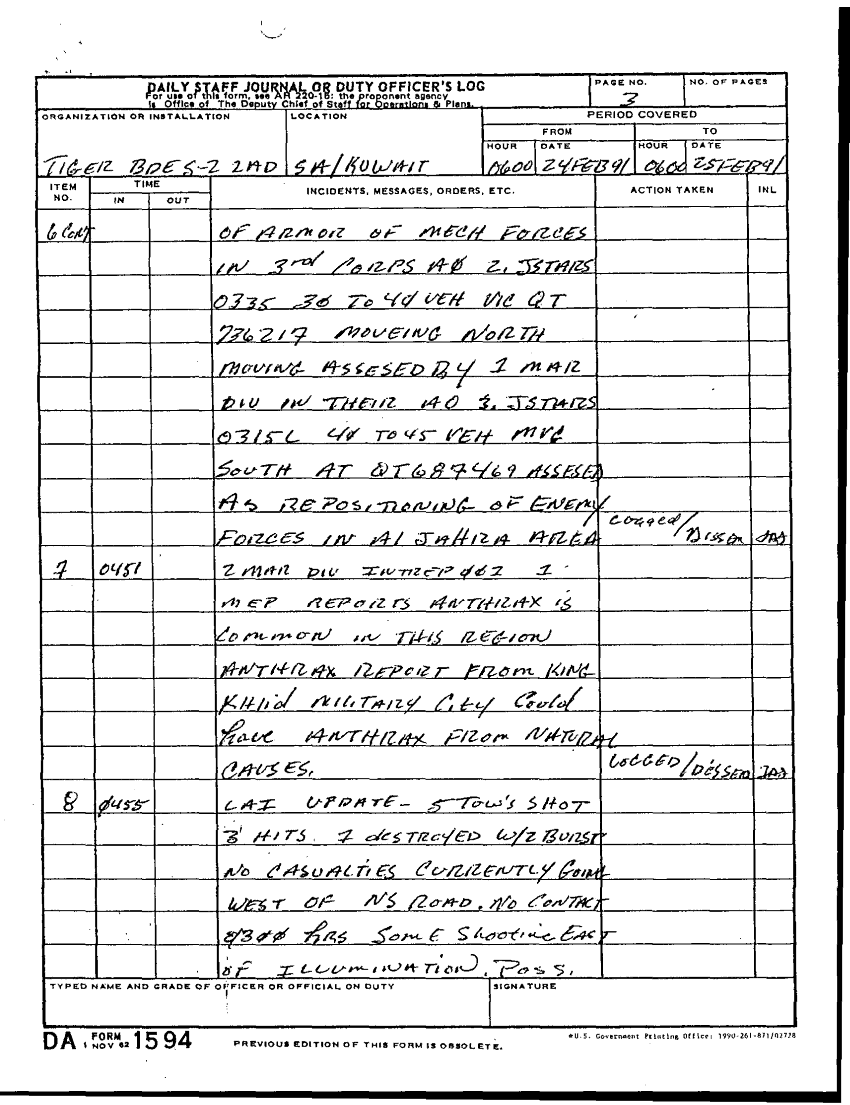 DAILY STAFF JOURNAL OR DUTY OFFICER'S LOG
For use of this form, see AR 220-15: the proponent agency
is Office of The Deputy Chief of Staff for Operations & Plans.
PAGE NO.
3
NO. OF PAGES
ORGANIZATION OR INSTALLATION
TIGER BDE S-2 2AD
LOCATION
SA/KUWAIT
PERIOD COVERED
FROM TO
HOUR DATE HOUR DATE
0600 24FEB91 0600 25FEB91
ITEM NO. TIME INCIDENTS, MESSAGES, ORDERS, ETC. ACTION TAKEN INL
IN OUT
6 CONT OF ARMOR OF MECH FORCES
IN 3rd CORPS AO 2. JSTARS
0335 30 TO 40 VEH VIC QT
736217 MOVEING NORTH
MOVING ASSESED BY 1 MAR
DIV IN THEIR AO 3. JSTARS
0315L 40 TO 45 VEH MVG
SOUTH AT QT687469 ASSESED
AS REPOSITIONING OF ENEMY
FORCES IN Al JAHRA AREA Logged/Dissem
7 0451 2 MAR DIV INTREP 1
MEP REPORTS ANTHRAX is
COMMON IN THIS REGION
ANTHRAX REPORT FROM KING
KHlid MILITARY City Could
have ANTHRAX FROM NATURAL
CAUSES. LOGGED/DESSEM
8 0455 LAI UPDATE - 5 TOW'S SHOT
3 HITS. 1 dESTROYED W/2 BURST
NO CASUALTIES CURRENTLY GOING
WEST OF NS ROAD. NO CONTACT
0300 hRS SOME Shooting EAST
OF ILLUMINATION. POSS.
TYPED NAME AND GRADE OF OFFICER OR OFFICIAL ON DUTY
SIGNATURE
DA FORM 1 NOV 62 1594
PREVIOUS EDITION OF THIS FORM IS OBSOLETE.
*U.S. Government Printing Office: 1990-261-871/02728